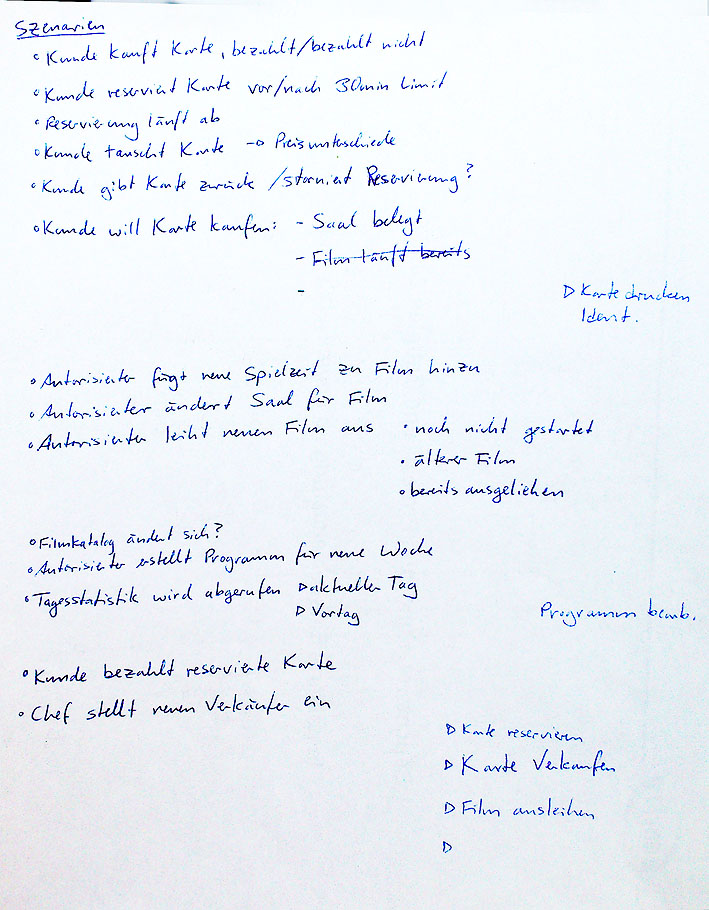 Szenarien
◦ Kunde kauft Karte, bezahlt/bezahlt nicht
◦ Kunde reserviert Karte vor/nach 30min Limit
◦ Reservierung läuft ab
◦ Kunde tauscht Karte → Preisunterschiede
◦ Kunde gibt Karte zurück / storniert Reservierung?
◦ Kunde will Karte kaufen: - Saal belegt
- Film läuft bereits
-
▷ Karte drucken
Ident.
◦ Autorisierter fügt neue Spielzeit zu Film hinzu
◦ Autorisierter ändert Saal für Film
◦ Autorisierter leiht neuen Film aus • noch nicht gestartet
• älterer Film
• bereits ausgeliehen
◦ Filmkatalog ändert sich?
◦ Autorisierter erstellt Programm für neue Woche
◦ Tagesstatistik wird abgerufen ▷ aktueller Tag
▷ Vortag
Programm bearb.
◦ Kunde bezahlt reservierte Karte
◦ Chef stellt neuen Verkäufer ein
▷ Karte reservieren
▷ Karte Verkaufen
▷ Film ausleihen
▷